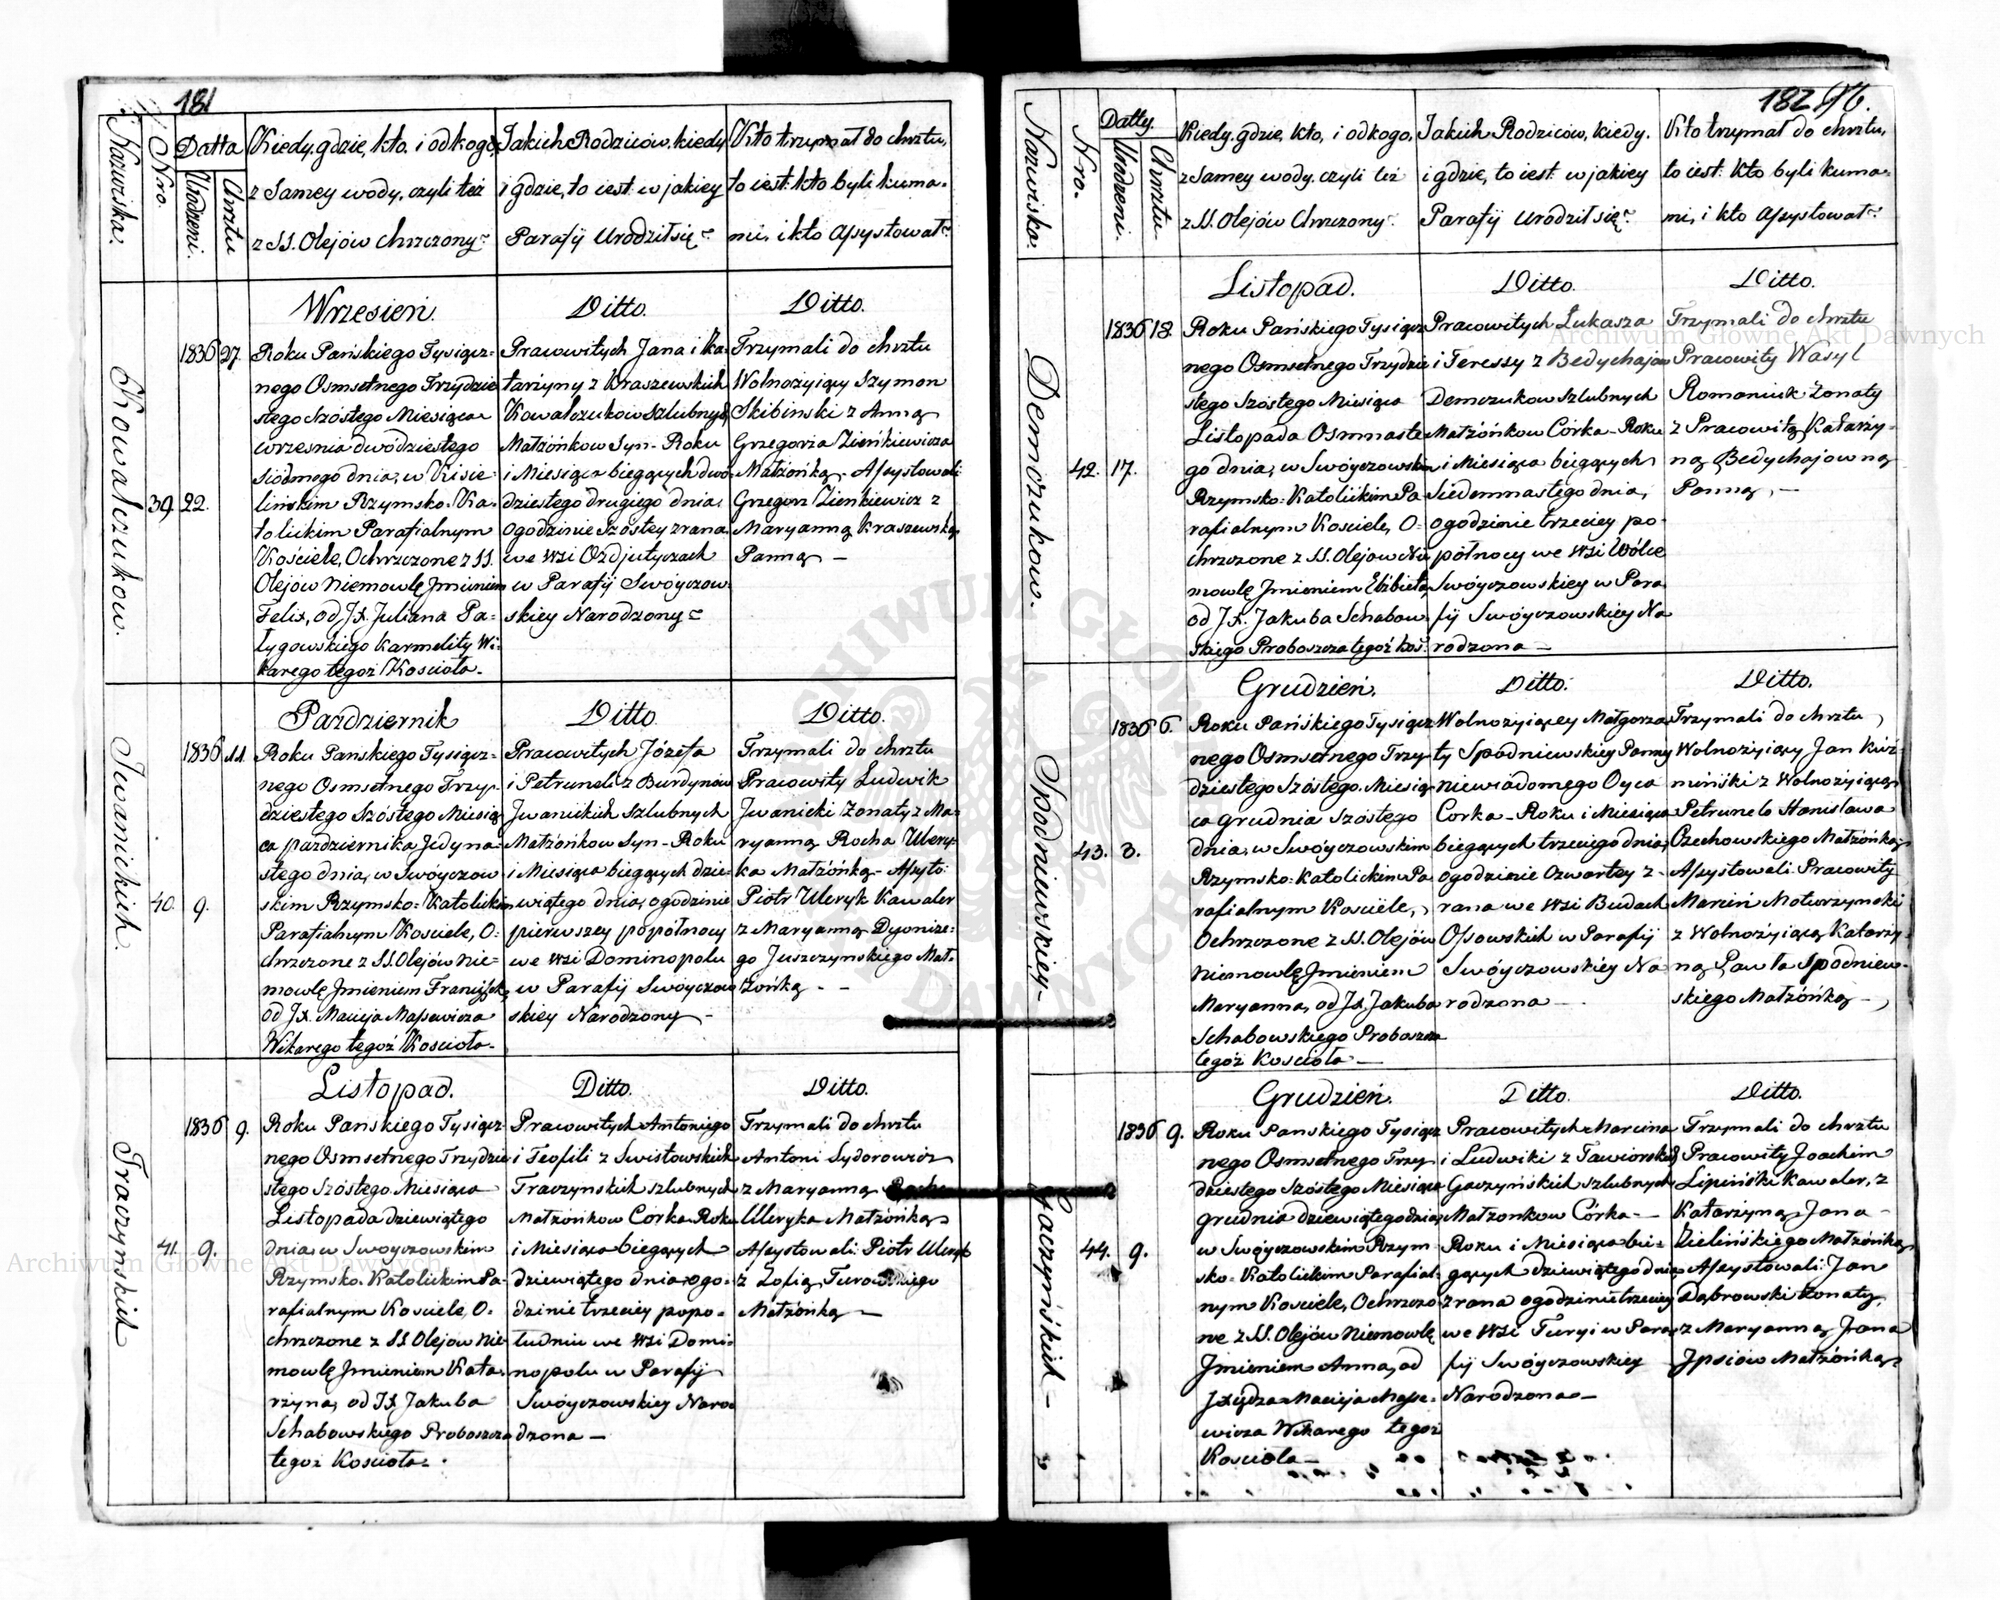 181
Nazwiska.
Nro.
Datta
Urodzeni.
Chrztu
Kiedy, gdzie, kto, i od kogo,
z Samey wody, czyli też
z SS. Olejów chrzczony?
Jakich Rodziców, kiedy,
i gdzie, to iest w jakiey
Parafij Urodził się?
Kto trzymał do chrztu,
to iest: kto byli kuma-
mi, i kto Assystował?
Kowalczukow.
39.
1836
22.
27.
Wrzesień.
Roku Pańskiego Tysiącz-
nego Osmsetnego Trzydzie
stego Szóstego Miesiąca
września dwódziestego
siódmego dnia, w Kisie-
lińskim Rzymsko-Ka-
tolickim Parafialnym
Kościele, Ochrzczone z SS.
Olejów Niemowlę Jmieniem
Felix, od JX. Juliana Pa-
tygowskiego Karmelity Wi-
karego tegoż Kościoła.
Ditto.
Pracowitych Jana i Ka-
tarzyny z Kraszewskich
Kowalczukow Szlubnych
Małżónkow Syn- Roku
i Miesiąca bieżących dwó
dziestego drugiego dnia,
o godzinie Szóstey z rana
we wsi Ozdjutyczach
w Parafij Swóyczow-
skiey Narodzony-
Ditto.
Trzymali do chrztu
Wolnożyiący Szymon
Skibinski z Anną
Grzegorza Zieńkiewicza
Małżonką- Assystowali
Grzegorz Zienkiewicz z
Maryanną Kraszewską
Panną —
Jwanickich.
40.
1836
9.
11.
Pazdziernik
Roku Panskiego Tysiącz-
nego Osmsetnego Trzy-
dziestego Szóstego Miesią
ca pazdziernika Jedyna-
stego dnia, w Swóyczow
skim Rzymsko-Katolickim
Parafialnym Kosciele, O-
chrzczone z SS. Olejów Nie-
mowlę Jmieniem Franciszek,
od JX. Macieja Massewicza
Wikarego tegoż Kosciola-
Ditto
Pracowitych Józefa
i Petruneli z Burdynow
Jwanickich szlubnych
Małżónkow Syn- Roku
i Miesiąca bieżących dzie-
wiątego dnia, o godzinie
pierwszey popółnocy
we wsi Dominopolu
w Parafij Swoyczow
skiey Narodzony-
Ditto.
Trzymali do chrztu
Pracowity Ludwik
Jwanicki żonaty z Ma-
ryanną Rocha Ulery-
ka Małżónką- Assysto:
Piotr Uleryk Kawaler
z Maryanną Dyonize-
go Juszczynskiego Mał-
żónką - -
Traczynskich
41.
1836
9.
9.
Listopad.
Roku Panskiego Tysiącz
nego Osmsetnego Trzydzie
stego Szóstego Miesiąca
Listopada dziewiątego
dnia, w Swoyczowskim
Rzymsko-Katolickim Pa-
rafialnym Kosciele, O-
chrzczone z SS. Olejow Nie-
mowlę Jmieniem Kata-
rzyna, od JX Jakuba
Schabowskiego Proboszcza
tegoż Kosciola.
Ditto.
Pracowitych Antoniego
i Teofili z Swistowskich
Traczynskich szlubnych
Małżonkow Corka. Roku
i Miesiąca bieżących
dziewiątego dnia, o go-
dzinie trzeciey popo-
łudniu we wsi Domi-
nopolu w Parafij
Swóyczowskiey Naro-
dzona —
Ditto.
Trzymali do chrztu
Antoni Sydorowicz
z Maryanną Rocha
Uleryka Małżónką
Assystowali: Piotr Uleryk
z Zofią Turowskiego
Małżónką —
182
Nazwiska.
Nro.
Datty.
Urodzeni.
Chrztu.
Kiedy, gdzie, kto, i od kogo,
z Samey wody, czyli też
z SS. Olejów Chrzczony?
Jakich Rodziców, kiedy,
i gdzie, to iest w jakiey
Parafij urodził się?
Kto trzymał do chrztu,
to iest: kto byli kuma-
mi, i kto Assystował?
Demczukow.
42.
1836
17.
18.
Listopad.
Roku Pańskiego Tysiącz
nego Osmsetnego Trzydzie
stego Szóstego Miesiąca
Listopada Osmnaste-
go dnia, w Swóyczowskim
Rzymsko-Katolickim Pa-
rafialnym Kosciele, O-
chrzczone z SS. Olejow Nie
mowlę Jmieniem Elżbieta,
od JX. Jakuba Schabow
skiego Proboszcza tegoż Koś:
Ditto.
Pracowitych Łukasza
i Teressy z Bedychajow
Demczukow Szlubnych
Małżónkow Corka- Roku
i Miesiąca bieżących
Siedemnastego dnia,
o godzinie trzeciey po-
północy we wsi Wólce
Swóyczowskiey w Para
fij Swóyczowskiey Na
rodzona —
Ditto.
Trzymali do chrztu
Pracowity Wasyl
Romaniuk żonaty
z Pracowitą Katarzy-
ną Bedychajowną
Panną, —
Spodniewskiey-
43.
1836
3.
6.
Grudzień.
Roku Pańskiego Tysiącz
nego Osmsetnego Trzy-
dziestego Szóstego Miesią
ca grudnia Szóstego
dnia, w Swóyczowskim
Rzymsko-Katolickim Pa
rafialnym Kosciele,
Ochrzczone z SS. Olejów
Niemowlę Jmieniem
Maryanna, od JX. Jakuba
Schabowskiego Proboszcza
tegoż Kosciola —
Ditto.
Wolnożyiącey Małgorza
ty Spodniewskiey Panny
niewiadomego Oyca
Corka- Roku i Miesiąca
bieżących trzeciego dnia,
o godzinie Czwartey z-
rana we wsi Budach
Ossowskich w Parafij
Swóyczowskiey Na
rodzona —
Ditto.
Trzymali do chrztu
Wolnożyiący Jan Kuź-
miński z Wolnożyiącą
Petrunelo Stanislawa
Czechowskiego Małżónką
Assystowali: Pracowity
Marcin Motorzynski
z Wolnożyiącą Katarzy-
ną Pawła Spodniew-
skiego Małżónką -
Gaczyńskich-
44.
1836
9.
9.
Grudzień.
Roku Panskiego Tysiącz
nego Osmsetnego Trzy
dziestego Szóstego Miesiąca
grudnia dziewiątego dnia,
w Swóyczowskim Rzym
sko-Katolickim Parafial-
nym Kosciele, Ochrzczo-
ne z SS. Olejów Niemowlę
Jmieniem Anna, od
Jxiędza Macieja Masse-
wicza Wikarego tegoż
Kosciola —
Ditto.
Pracowitych Marcina
i Ludwiki z Jaworskich
Gaczyńskich szlubnych
Małżonkow Córka —
Roku i Miesiąca bie-
gących dziewiątego dnia,
z rana o godzinie trzeciey
we wsi Turyi w Para-
fij Swóyczowskiey
Narodzona —
Ditto.
Trzymali do chrztu
Pracowity Joachim
Lipiński Kawaler, z
Katarzyną Jana
Zielińskiego Małżónką,
Assystowali: Jan
Dąbrowski żonaty,
z Maryanną Jana
Jpsiów Małżónką
Archiwum Główne Akt Dawnych
Archiwum Główne Akt Dawnych